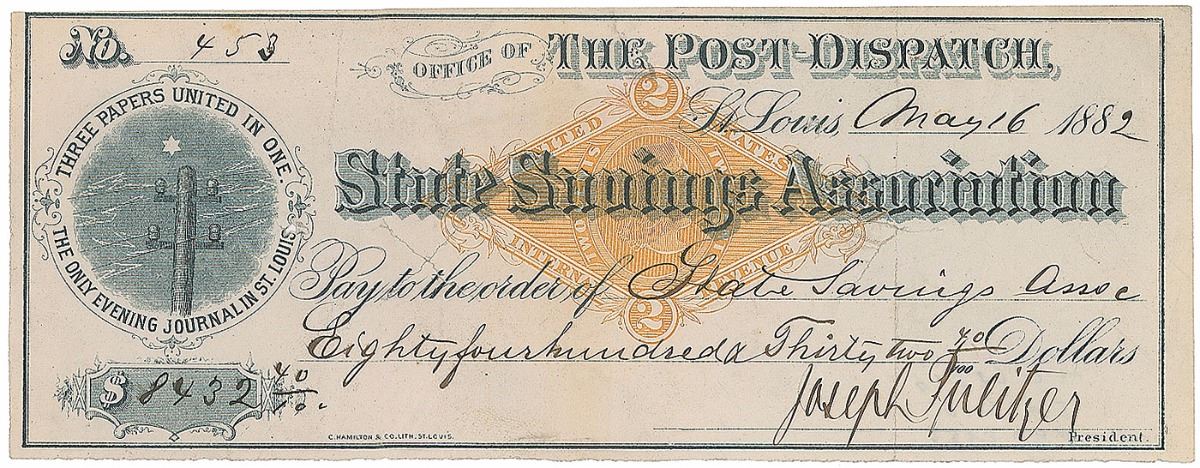 No. 453
OFFICE OF THE POST-DISPATCH,
St. Louis, May 16 1882
THREE PAPERS UNITED IN ONE
THE ONLY EVENING JOURNAL IN ST. LOUIS
2
UNITED STATES
INTERNAL REVENUE
2
State Savings Association
Pay to the order of State Savings Assoc
Eighty four hundred & Thirty two 40/100 Dollars
$8432 40/100
Joseph Pulitzer
President.
C. HAMILTON & CO. LITH. ST. LOUIS.